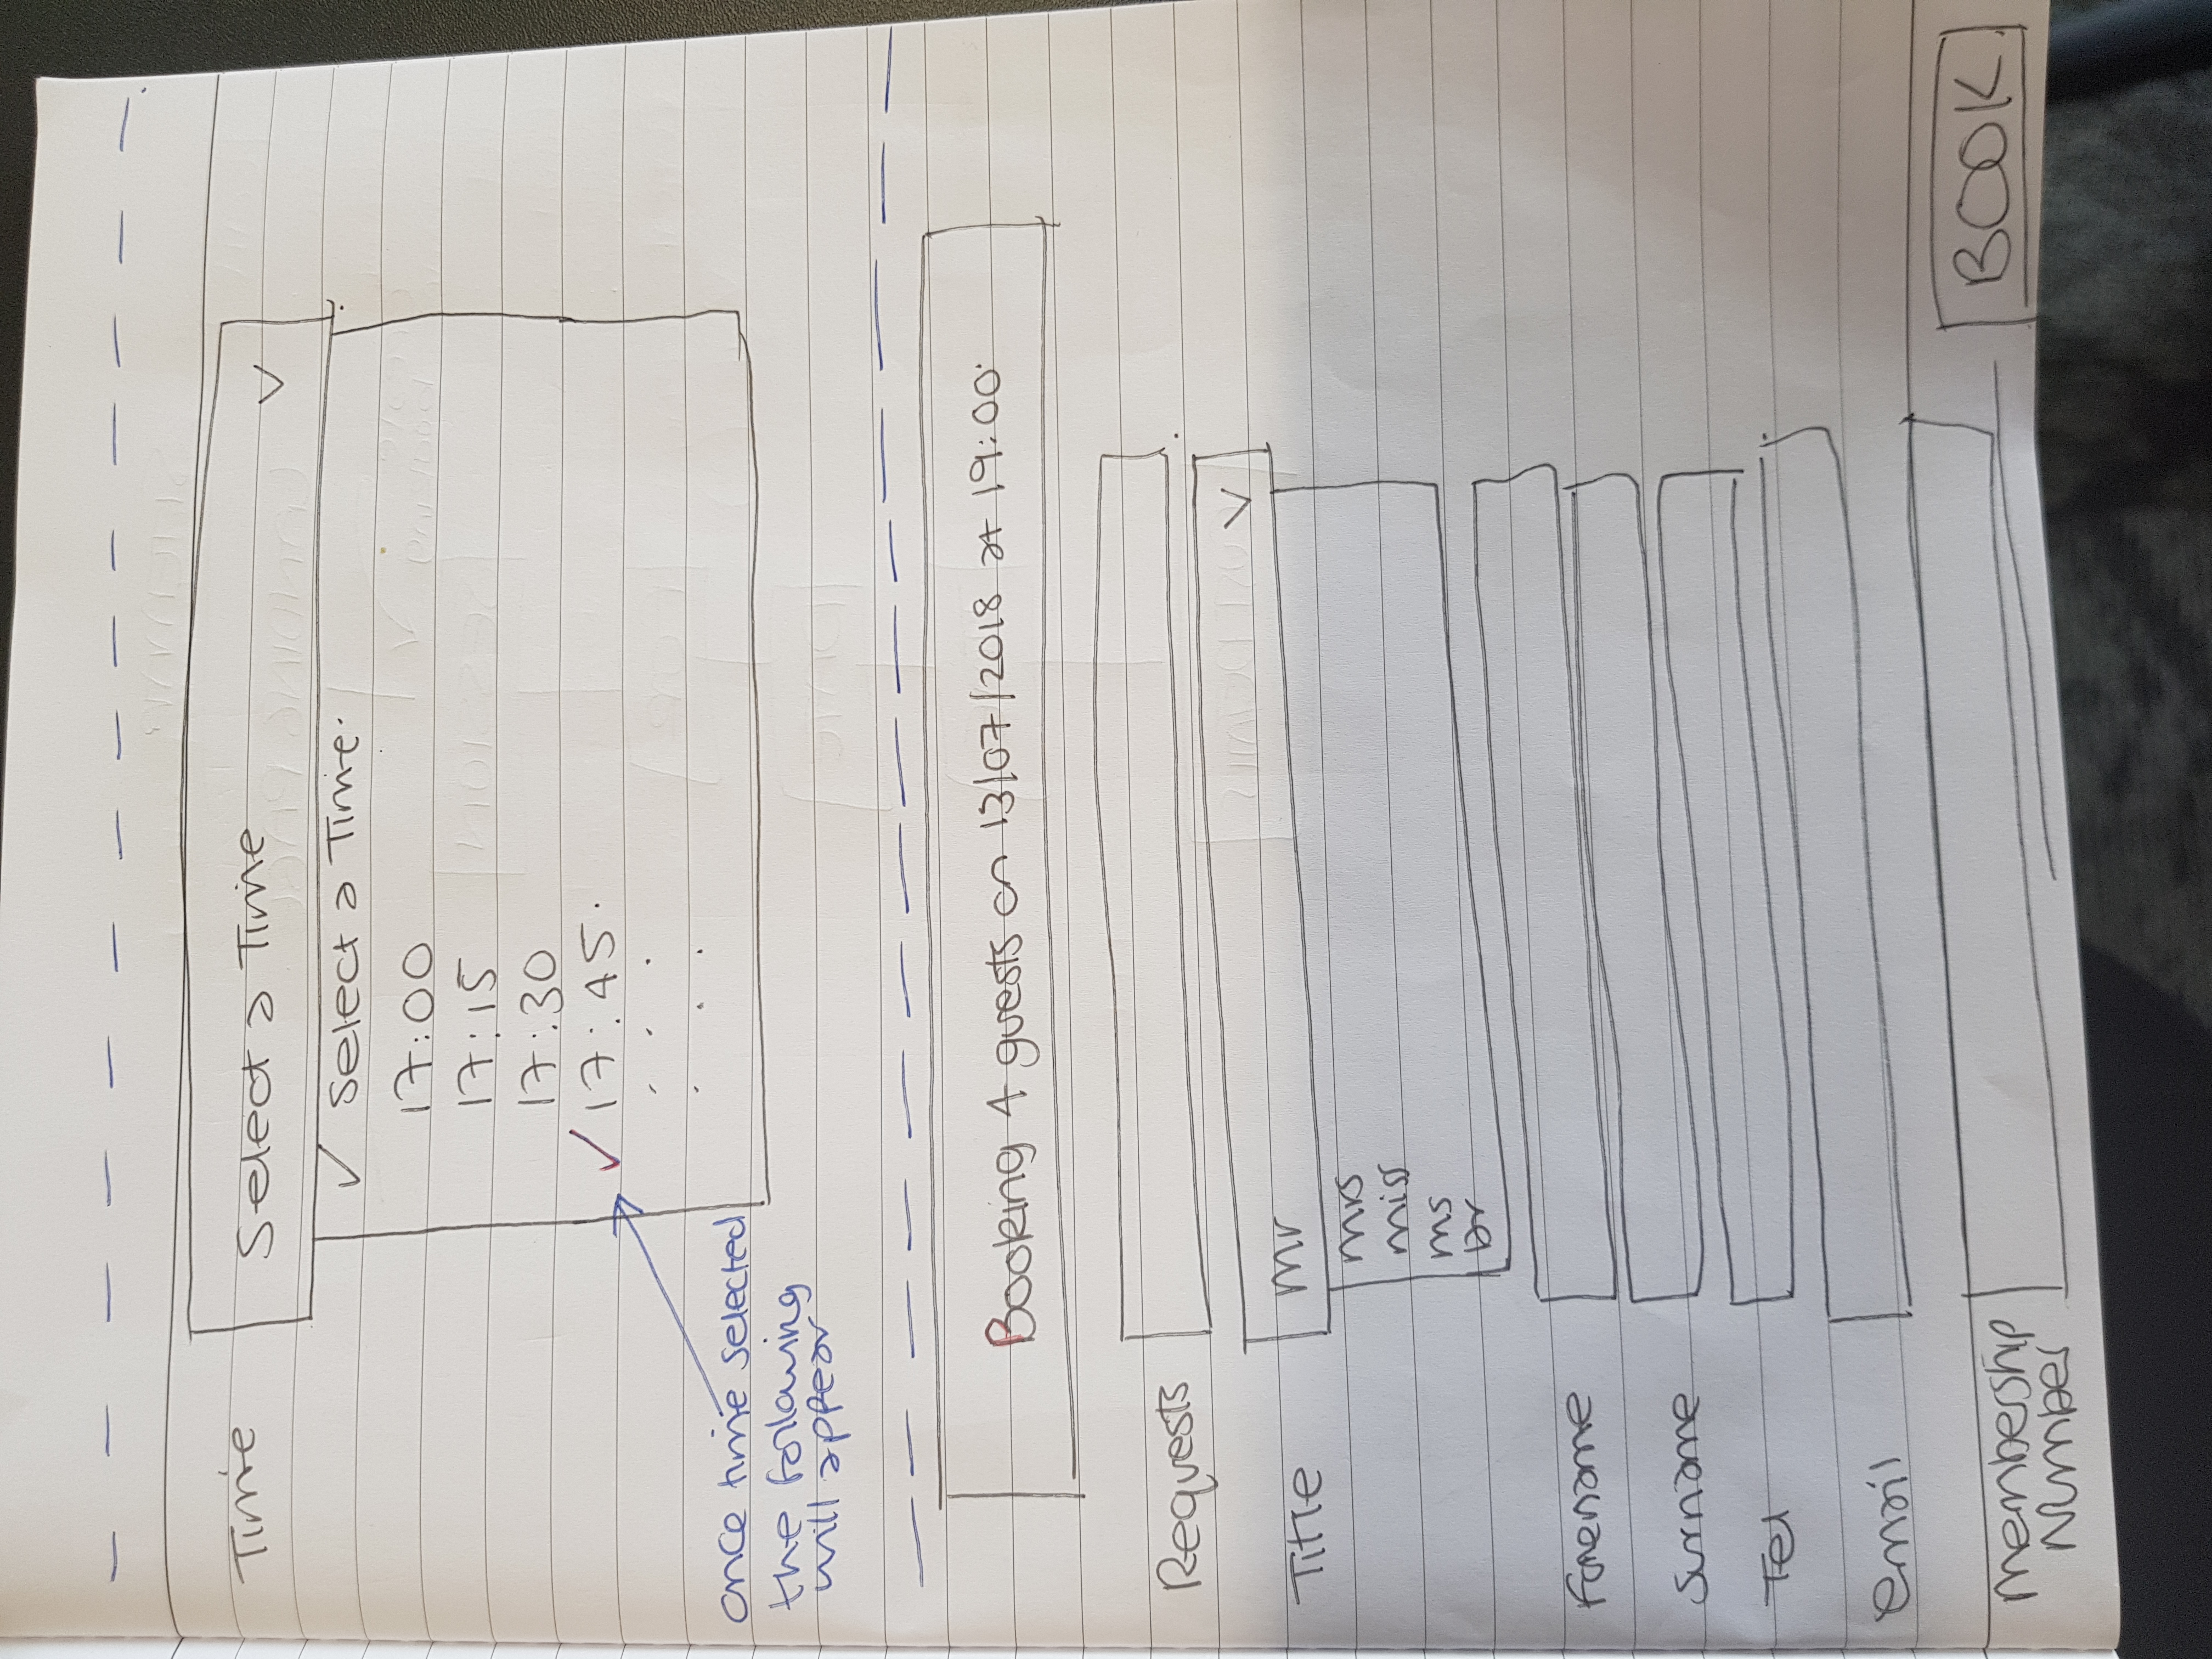 Time
Select a Time
✓ Select a Time.
17:00
17:15
17:30
✓ 17:45.
. . .
. . .
once time selected
the following
will appear
Booking 4 guests on 13/07/2018 at 19:00.
Requests
Title
Mr
Mrs
Miss
Ms
Dr
Forename
Surname
Tel
email
Membership
Number
BOOK